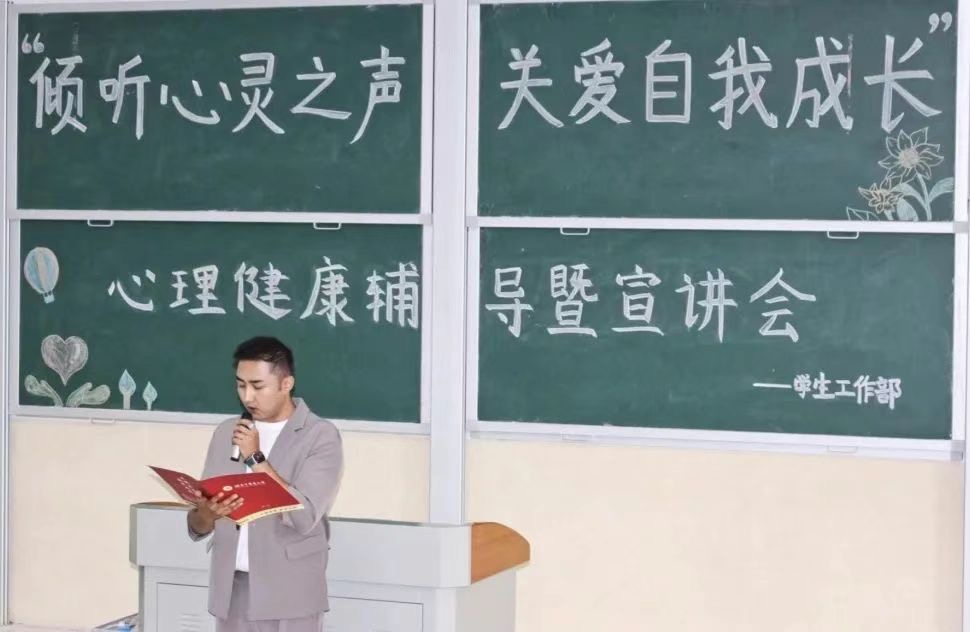 “倾听心灵之声 关爱自我成长”
心理健康辅导暨宣讲会
——学生工作部